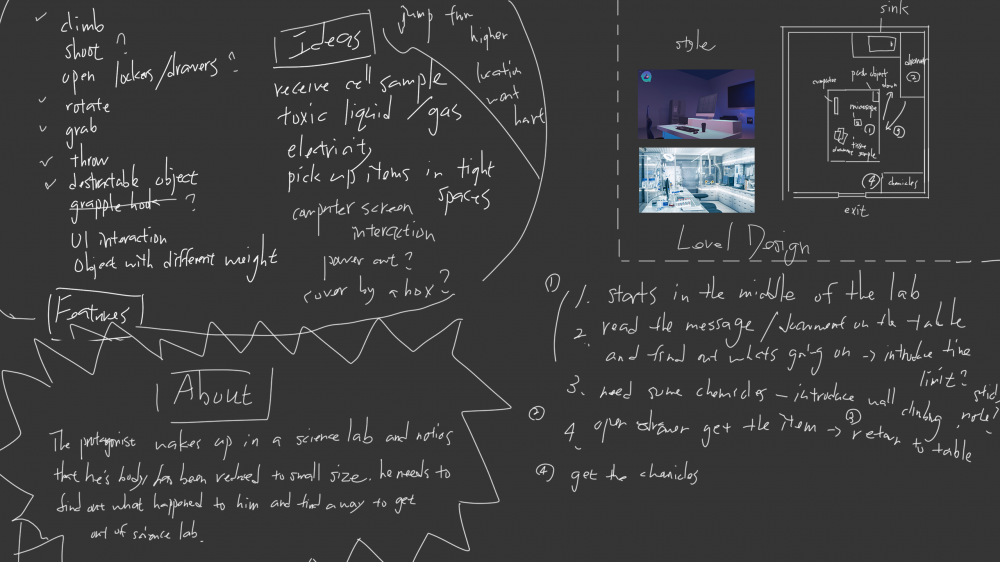 climb
shoot ?
open lockers/drawers ?
rotate
grab
throw
destructable object
grapple hook ?
UI interaction
object with different weight
Features
Ideas
receive cell sample
toxic liquid /gas
electricity
pick up items in tight
spaces
computer screen
interaction
power out?
cover by a box?
jump
higher
location
wont
hurt
About
The protagonist wakes up in a science lab and notics
that he's body has been reduced to small size. he needs to
find out what happened to him and find a way to get
out of science lab.
style
sink
drawer
②
computer
pick object
down
message
①
③
tissue
sample
④
chemicles
exit
Level Design
①
1. starts in the middle of the lab
2. read the message/document on the table
and find out whats going on → introduce time
limit?
3. need some chemicles – introduce wall climbing
note?
②
4. open drawer get the item → ③ return to table
④ get the chemicles